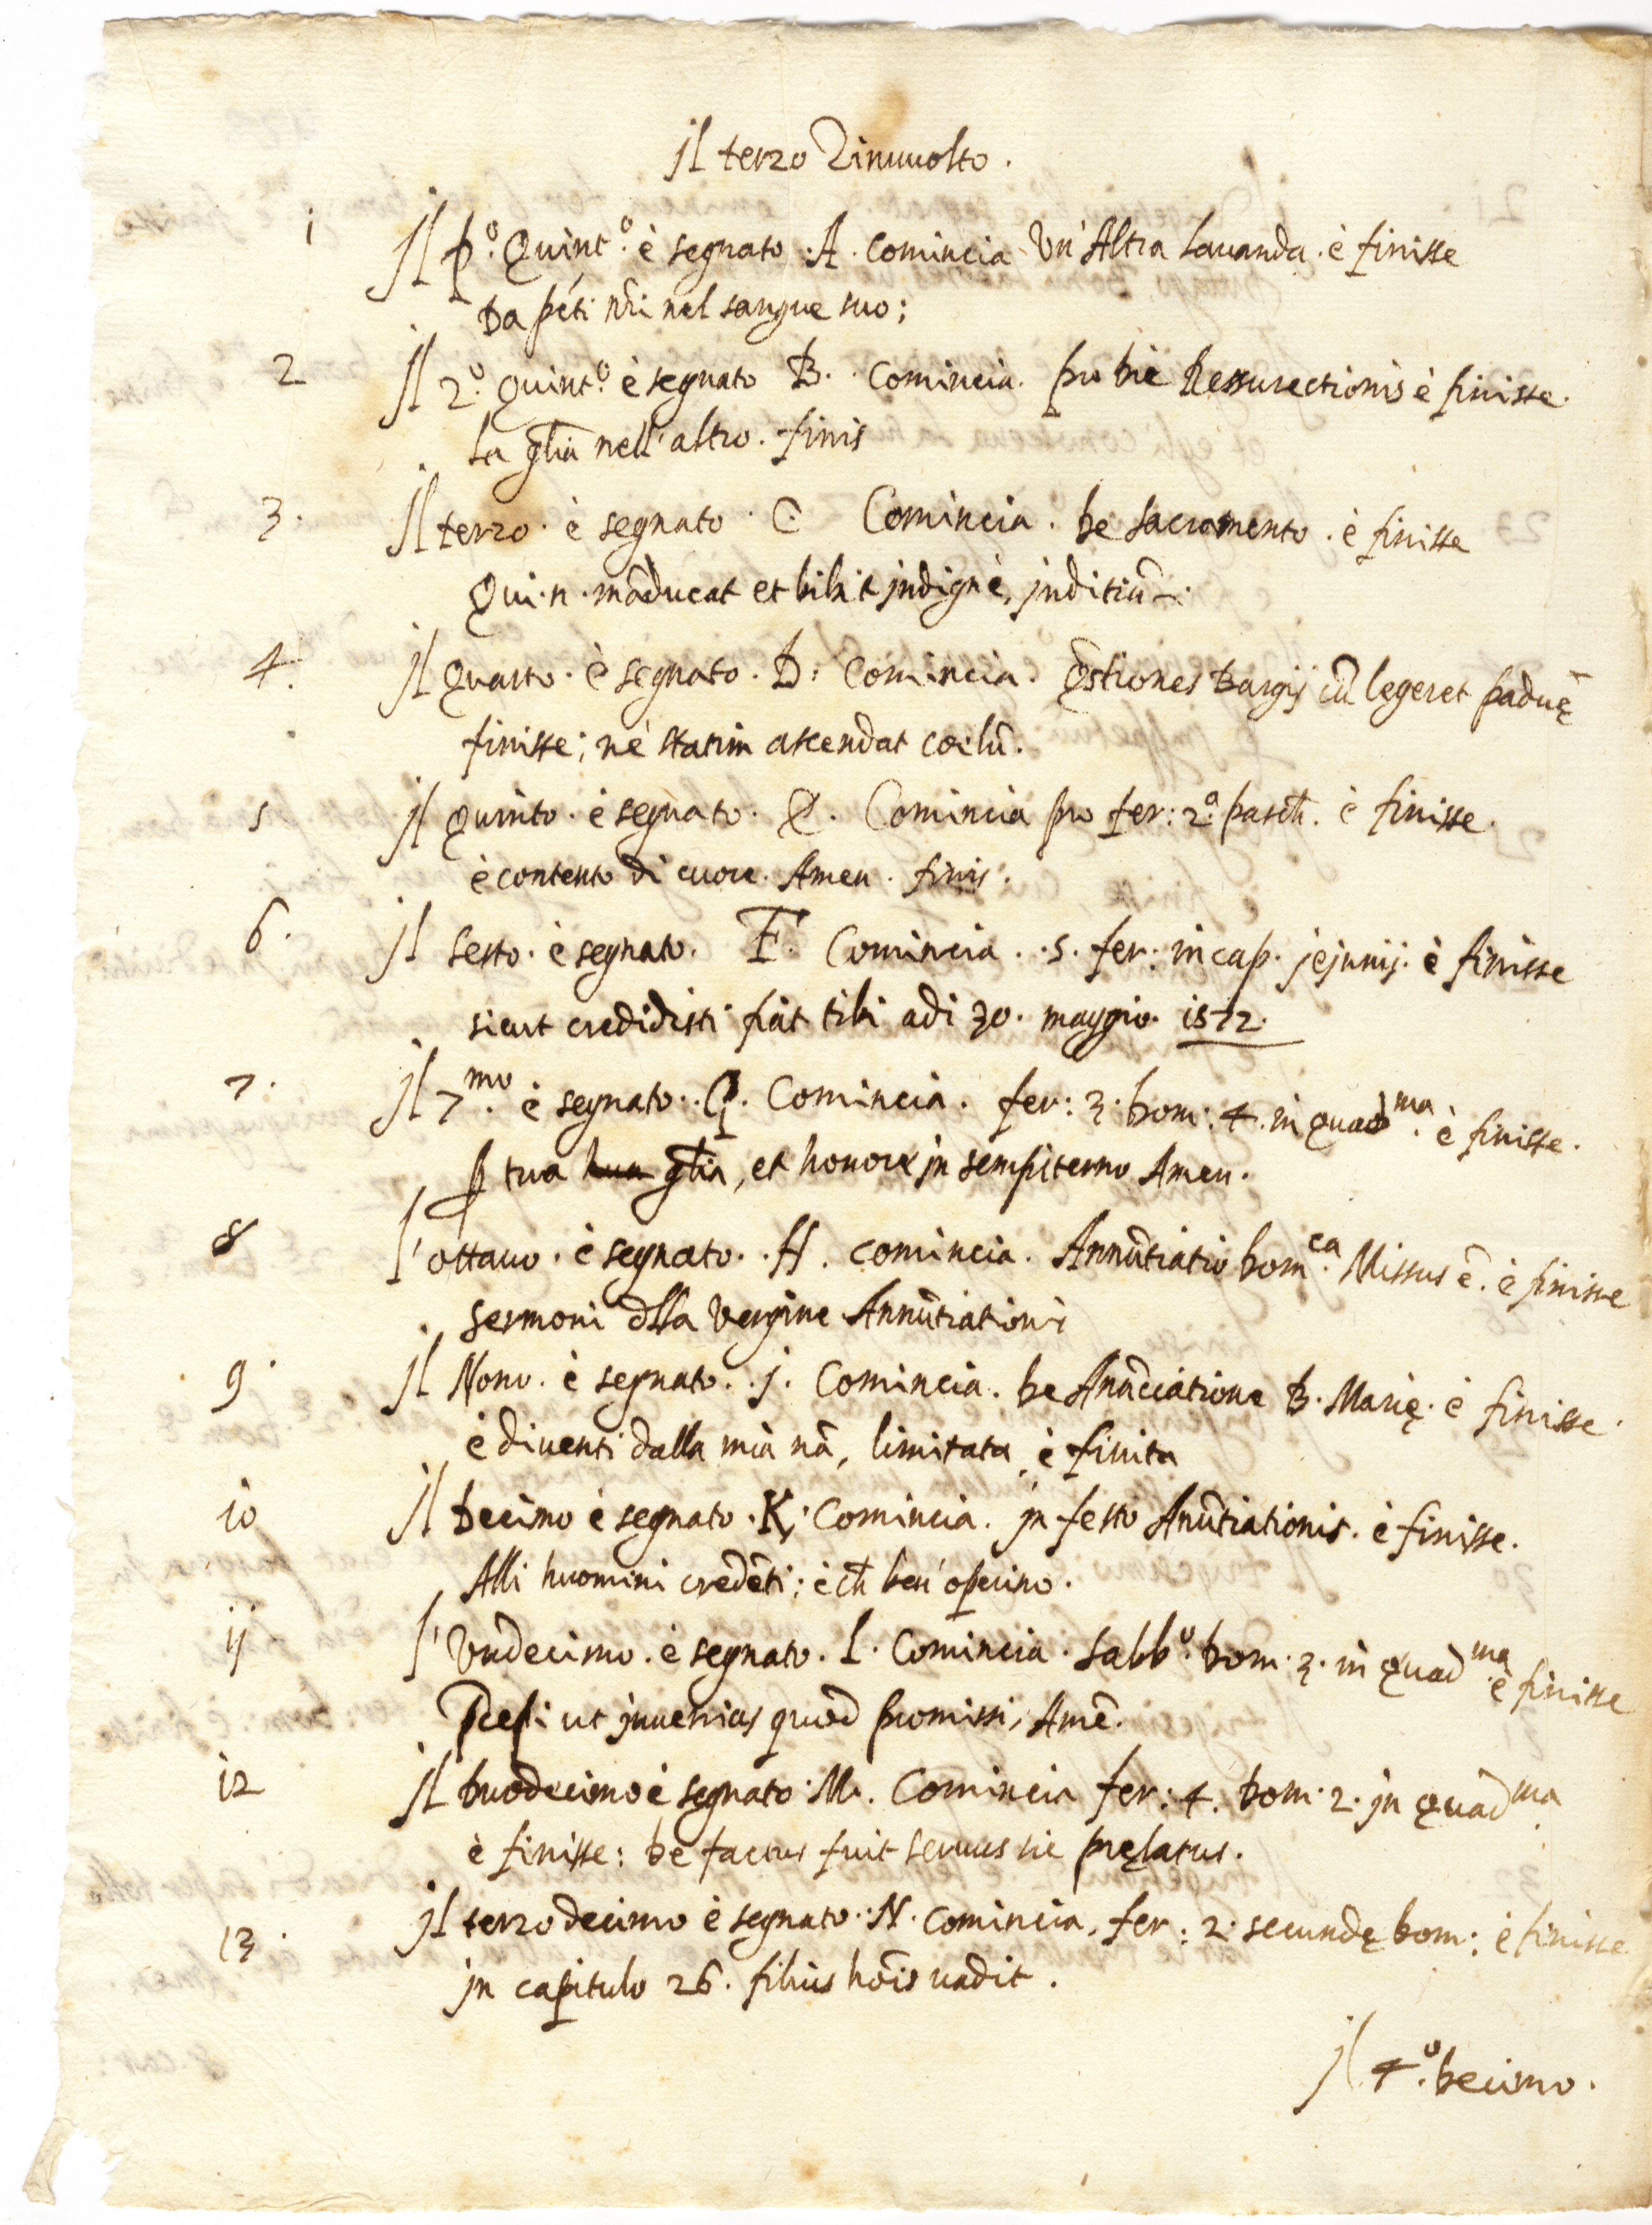 Jl terzo Rinuuolto.
i Jl p.º Quint.º è segnato .A. Comincia Vn' Altra Lauanda. è finisse
Da pcti nri nel sangue suo;
2 Jl 2.º Quint.º è segnato B. Comincia. pro die Ressurectionis è finisse.
La gl̃ia nell'altro. finis
3. Jl terzo. è segnato. C. Comincia. De Sacramento. è finisse
Qui. n. mãducat et bibit jndignè, juditiũ.
4. Jl Quarto. è segnato. D: Comincia. Q̃stiones Bargij cũ legeret paduę
finisse; nè statim ascendat coelũ.
5 Jl Quinto. è segnato. E. Comincia pro fer: 2.ª pasch̃. è finisse.
è contento di cuore. Amen. finis.
6. Jl Sesto. è segnato. F. Comincia. .5. fer: in cap. jejunij. è finisse
sicut credidisti fiat tibi adi 30. maggio. 1572.
7. Jl 7.mo è segnato. .G. Comincia. fer: 3. Dom: 4. in Quad.ma è finisse.
p tua gl̃ia, et honore jn sempiterno Amen.
8 l'ottauo. è segnato. .H. comincia. Annũtiatio Dom.ca Missus ẽ. è finisse
sermoni dlla Vergine Annũtiationi
9. Jl Nono. è segnato. .j. Comincia. De Anũciatione B. Marię. è finisse.
è diuenti dalla mia nã, limitata, è finita
io Jl Decimo è segnato. K. Comincia. jn festo Anũtiationis. è finisse.
Alli huomini credẽti; è ch̃ ben' operino.
ij l'Vndecimo. è segnato. L. Comincia. Sabb.º Dom. 3. in Quad.ma è finisse
ut jnuenias quod promissi, Amẽ.
i2 Jl Duodecimo è segnato. M. Comincia fer: 4. Dom. 2. jn Quad.ma
è finisse: De factus fuit seruus sic pręlatus.
13. Jl terzodecimo è segnato. .N. Comincia, fer: 2. secundę Dom: è finisse
jn capitulo 26. filius hõis uadit.
Jl 4.º Decimo.